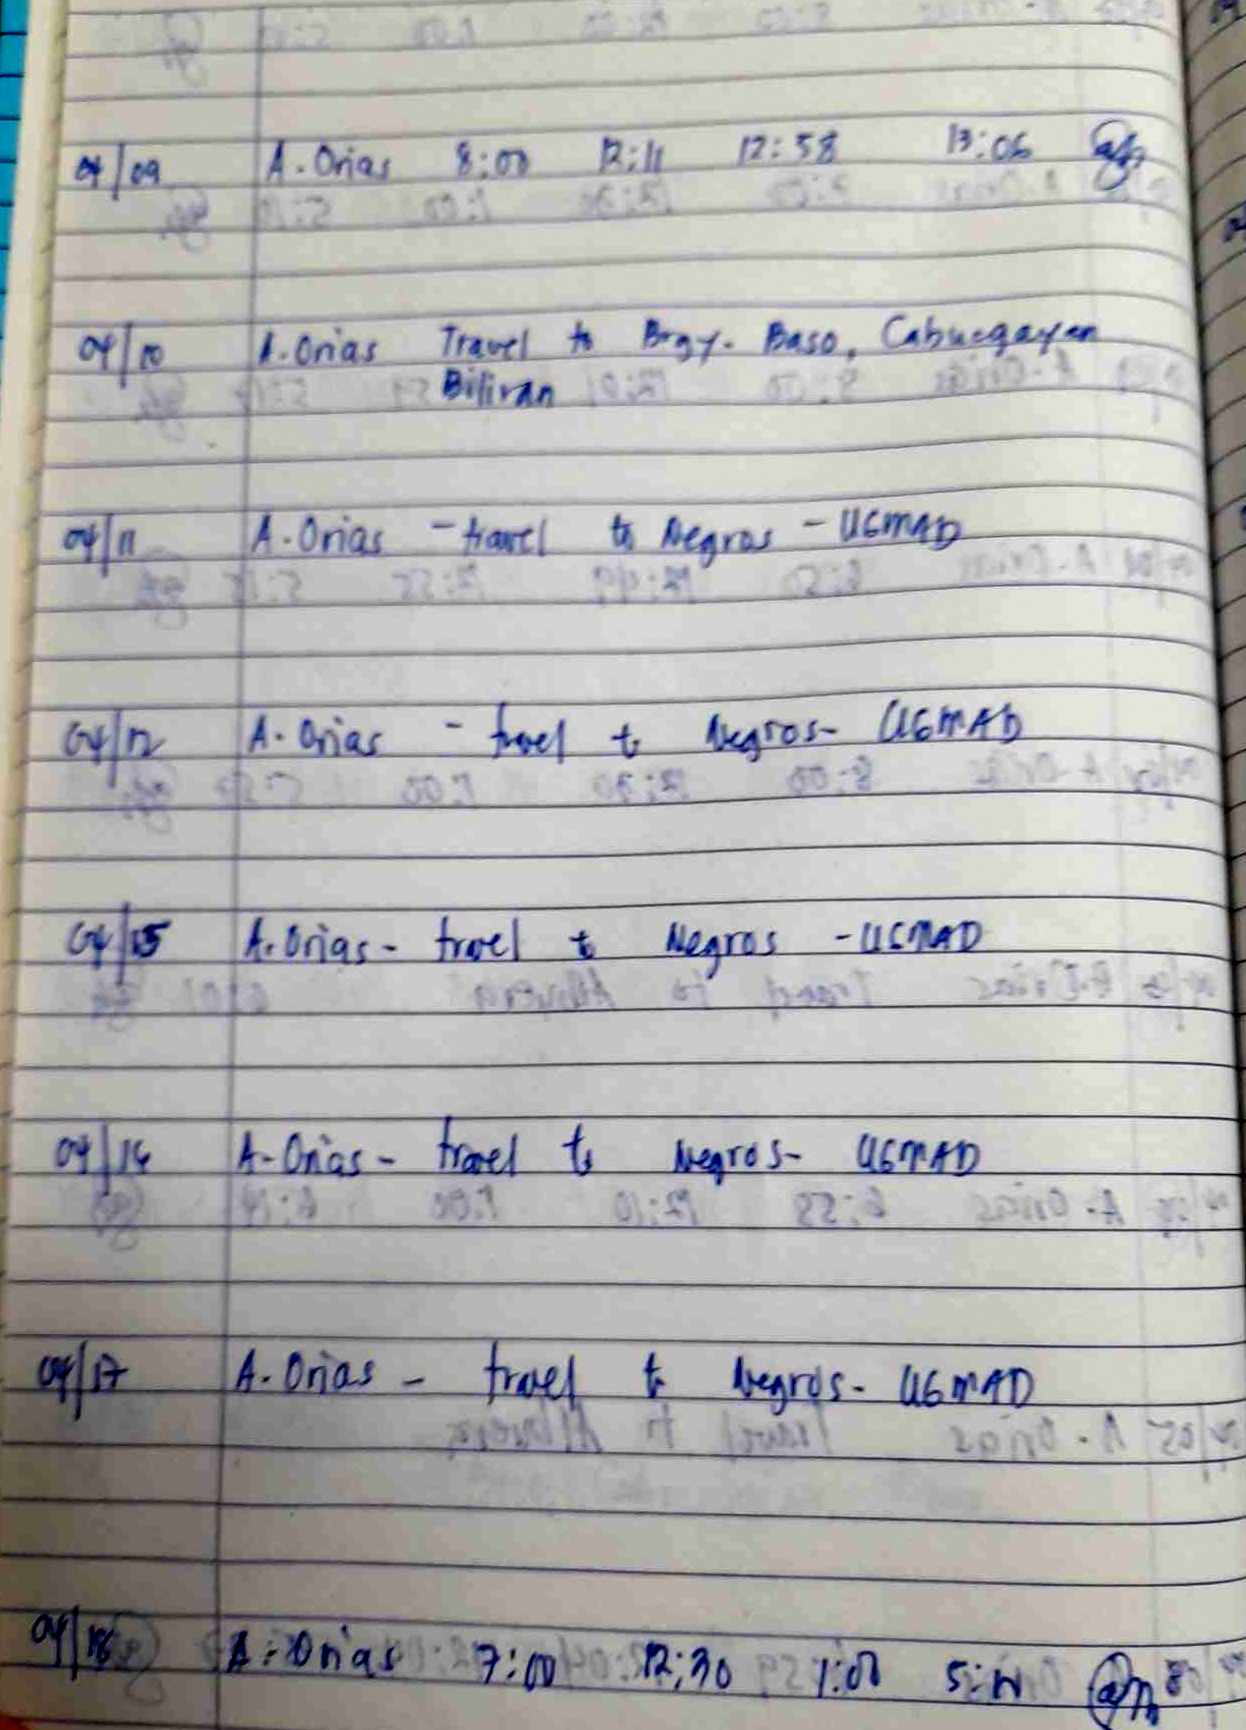 04/09 A. Orias 8:00 12:11 12:58 13:06
04/10 A. Orias Travel to Brgy. Baso, Cabucgayan
Biliran
04/11 A. Orias - travel to Negros - UGMAD
04/12 A. Orias - travel to Negros - UGMAD
04/15 A. Orias - travel to Negros - UGMAD
04/16 A. Orias - travel to Negros - UGMAD
04/17 A. Orias - travel to Negros - UGMAD
04/18 A. Orias 7:00 12:30 1:00